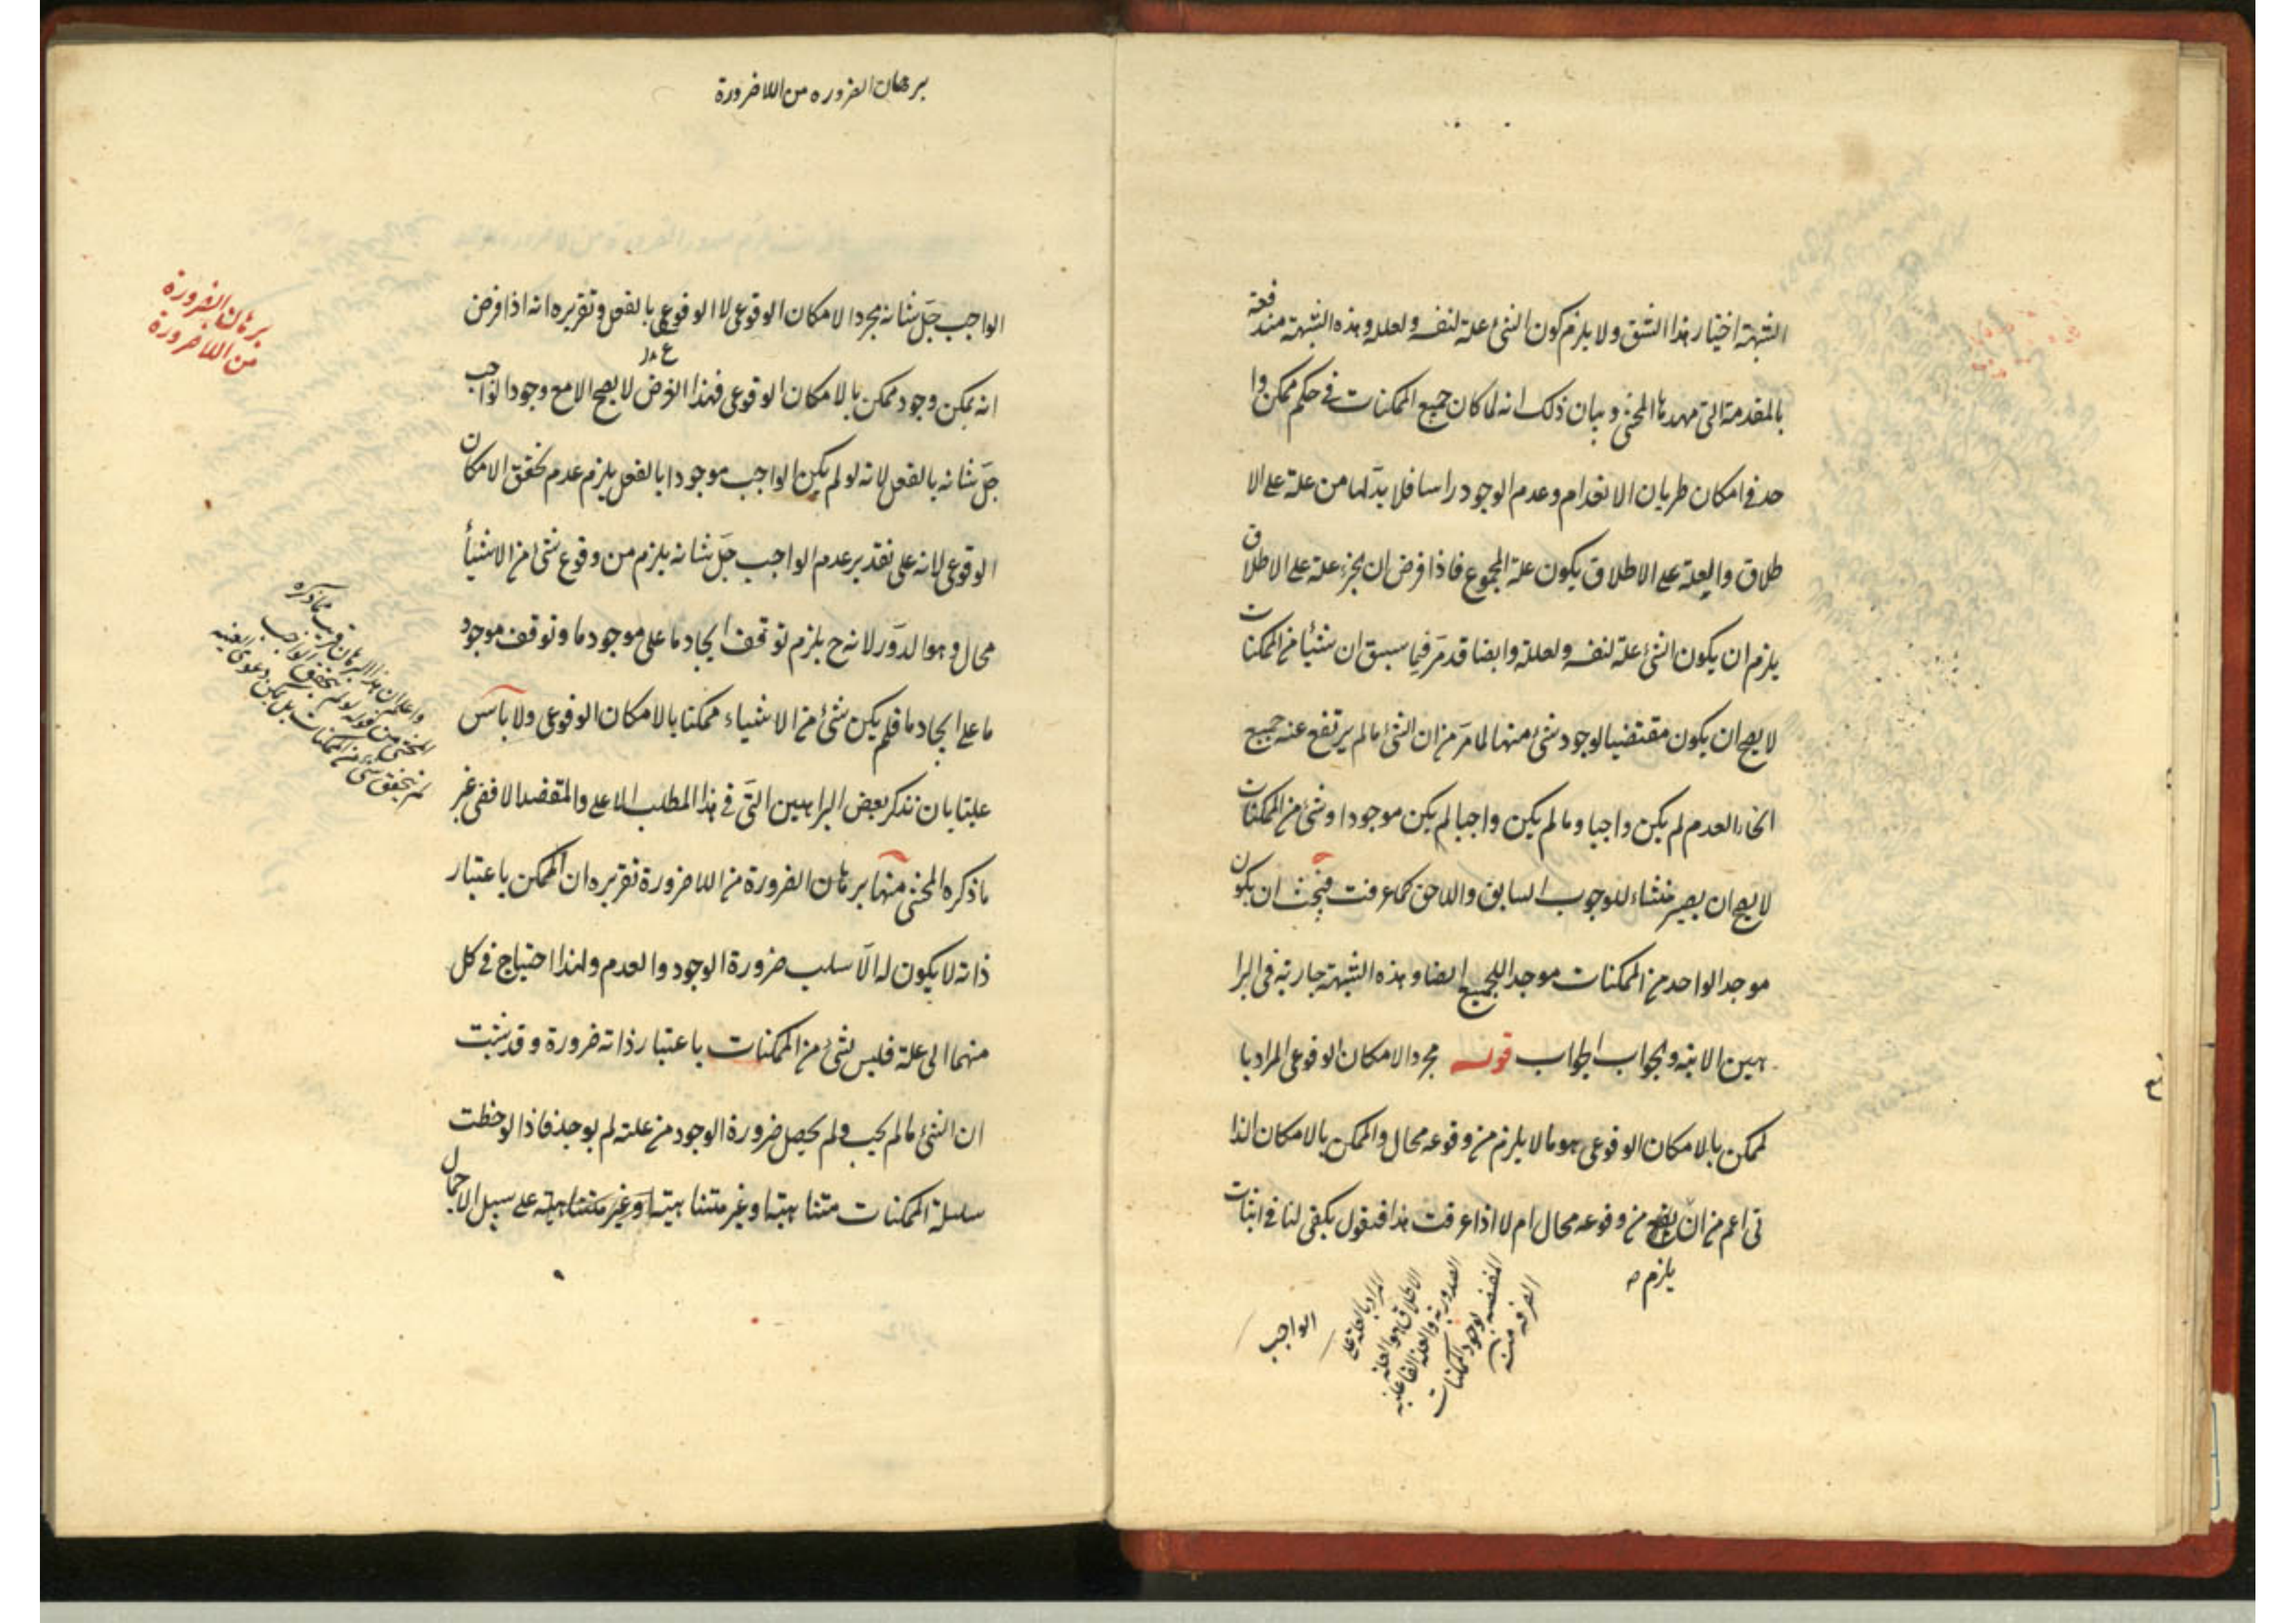 الشبهة اختيار هذا الشق ولا يلزم كون الشئ علة لنفسه ولعلله وهذه الشبهة مندفعة
بالمقدمة التى مهدها المحشى وبيان ذلك انه لما كان جميع الممكنات فى حكم ممكن وا
حد فى امكان طريان الانعدام وعدم الوجود راسا فلا بد لها من علة على الا
طلاق والعلة على الاطلاق يكون علة المجموع فاذا فرض ان الجزء علة على الاطلاق
يلزم ان يكون الشئ علة لنفسه ولعلله وايضا قد مرّ فيما سبق ان شيئا من الممكنات
لا يصح ان يكون مقتضيا لوجود شئ منها لما مرّ من ان الشئ ما لم يرتفع عنه جميع
انحاء العدم لم يكن واجبا وما لم يكن واجبا لم يكن موجودا وشئ من الممكنات
لا يصح ان يصير منشاء للوجوب السابق واللاحق كما عرفت فيجب ان يكون
موجد الواحد من الممكنات موجد الجميع ايضا وهذه الشبهة جارية فى البرا
هين الانية والجواب الجواب قوله مجرد الامكان الوقوعى المراد با
لممكن بالامكان الوقوعى هو ما لا يلزم من وقوعه محال والممكن بالامكان الذا
تى اعم من ان من وقوعه محال ام لا اذا عرفت هذا فنقول يكفى لنا فى اثبات
يلزم صه
المراد بالعلة على
الاطلاق هو العلة
الصورية والعلة الفاعلية
المقتضية لوجود الممكنات
الصرفة منه
الواجب
برهان الضروره من اللا ضرورة
الواجب جلّ شانه مجرد الامكان الوقوعى لا الوقوعى بالفعل وتقريره انه اذا فرض
انه يمكن وجود ممكن بالامكان الوقوعى فهذا الفرض لا يصح الا مع وجود الواجب
جلّ شانه بالفعل لانه لو لم يكن الواجب موجودا بالفعل يلزم عدم تحقق الامكان
الوقوعى لانه على تقدير عدم الواجب جلّ شانه يلزم من وقوع شئ من الاشيأ
محال وهو الدور لانه ح يلزم توقف ايجاد ما على موجود ما وتوقف موجود
ما على ايجاد ما فلم يكن شئ من الاشياء ممكنا بالامكان الوقوعى ولا بأس
علينا بان نذكر بعض البراهين التى فى هذا المطلب الاعلى والمقصد الاقصى غير
ما ذكره المحشى منها برهان الضرورة من اللا ضرورة تقريره ان الممكن باعتبار
ذاته لا يكون له الّا سلب ضرورة الوجود والعدم ولهذا احتياج فى كل
منهما الى علة فليس لشئ من الممكنات باعتبار ذاته ضرورة وقد ثبت
ان الشئ ما لم يجب ولم يحصل ضرورة الوجود من علته لم يوجد فاذا لوحظت
سلسلة الممكنات متناهية او غير متناهية او غير متناهية على سبيل الاجمال
برهان الضرورة
من اللا ضرورة
واعلم ان هذا البرهان قريب مما ذكره
المحشى من قوله لو لم يتحقق الواجب
لم يتحقق شئ من الممكنات بل يمكن دعوى العينية